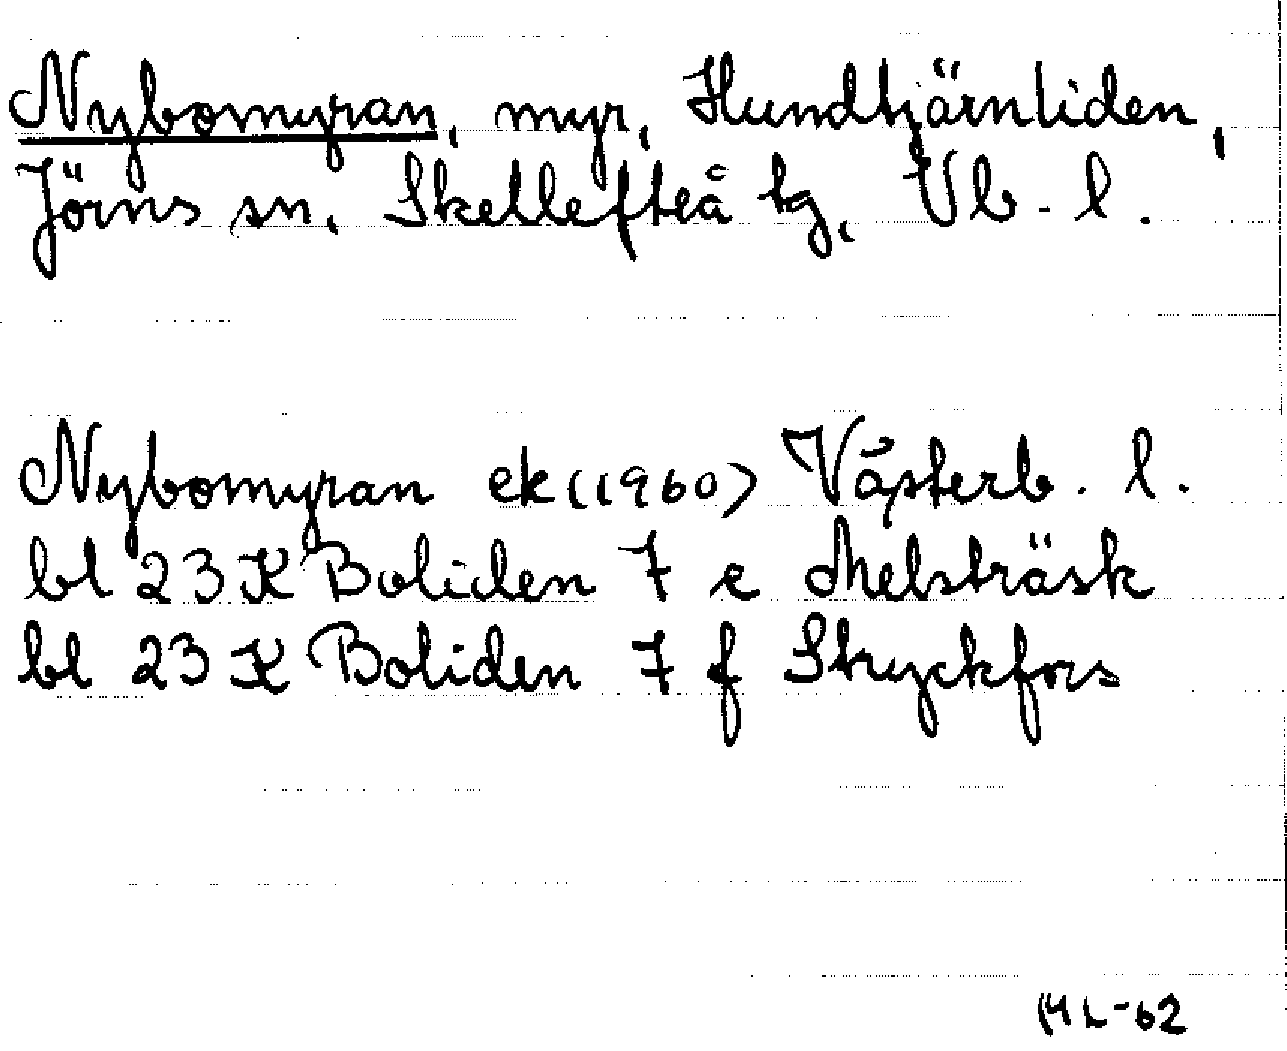 Nybomyran, myr, Hundtjärnliden,
Jörns sn, Skellefteå tg, Vb. l.
Nybomyran ek (1960) Västerb. l.
bl 23 K Boliden 7 e Melsträsk
bl 23 K Boliden 7 f Stryckfors
ML-62